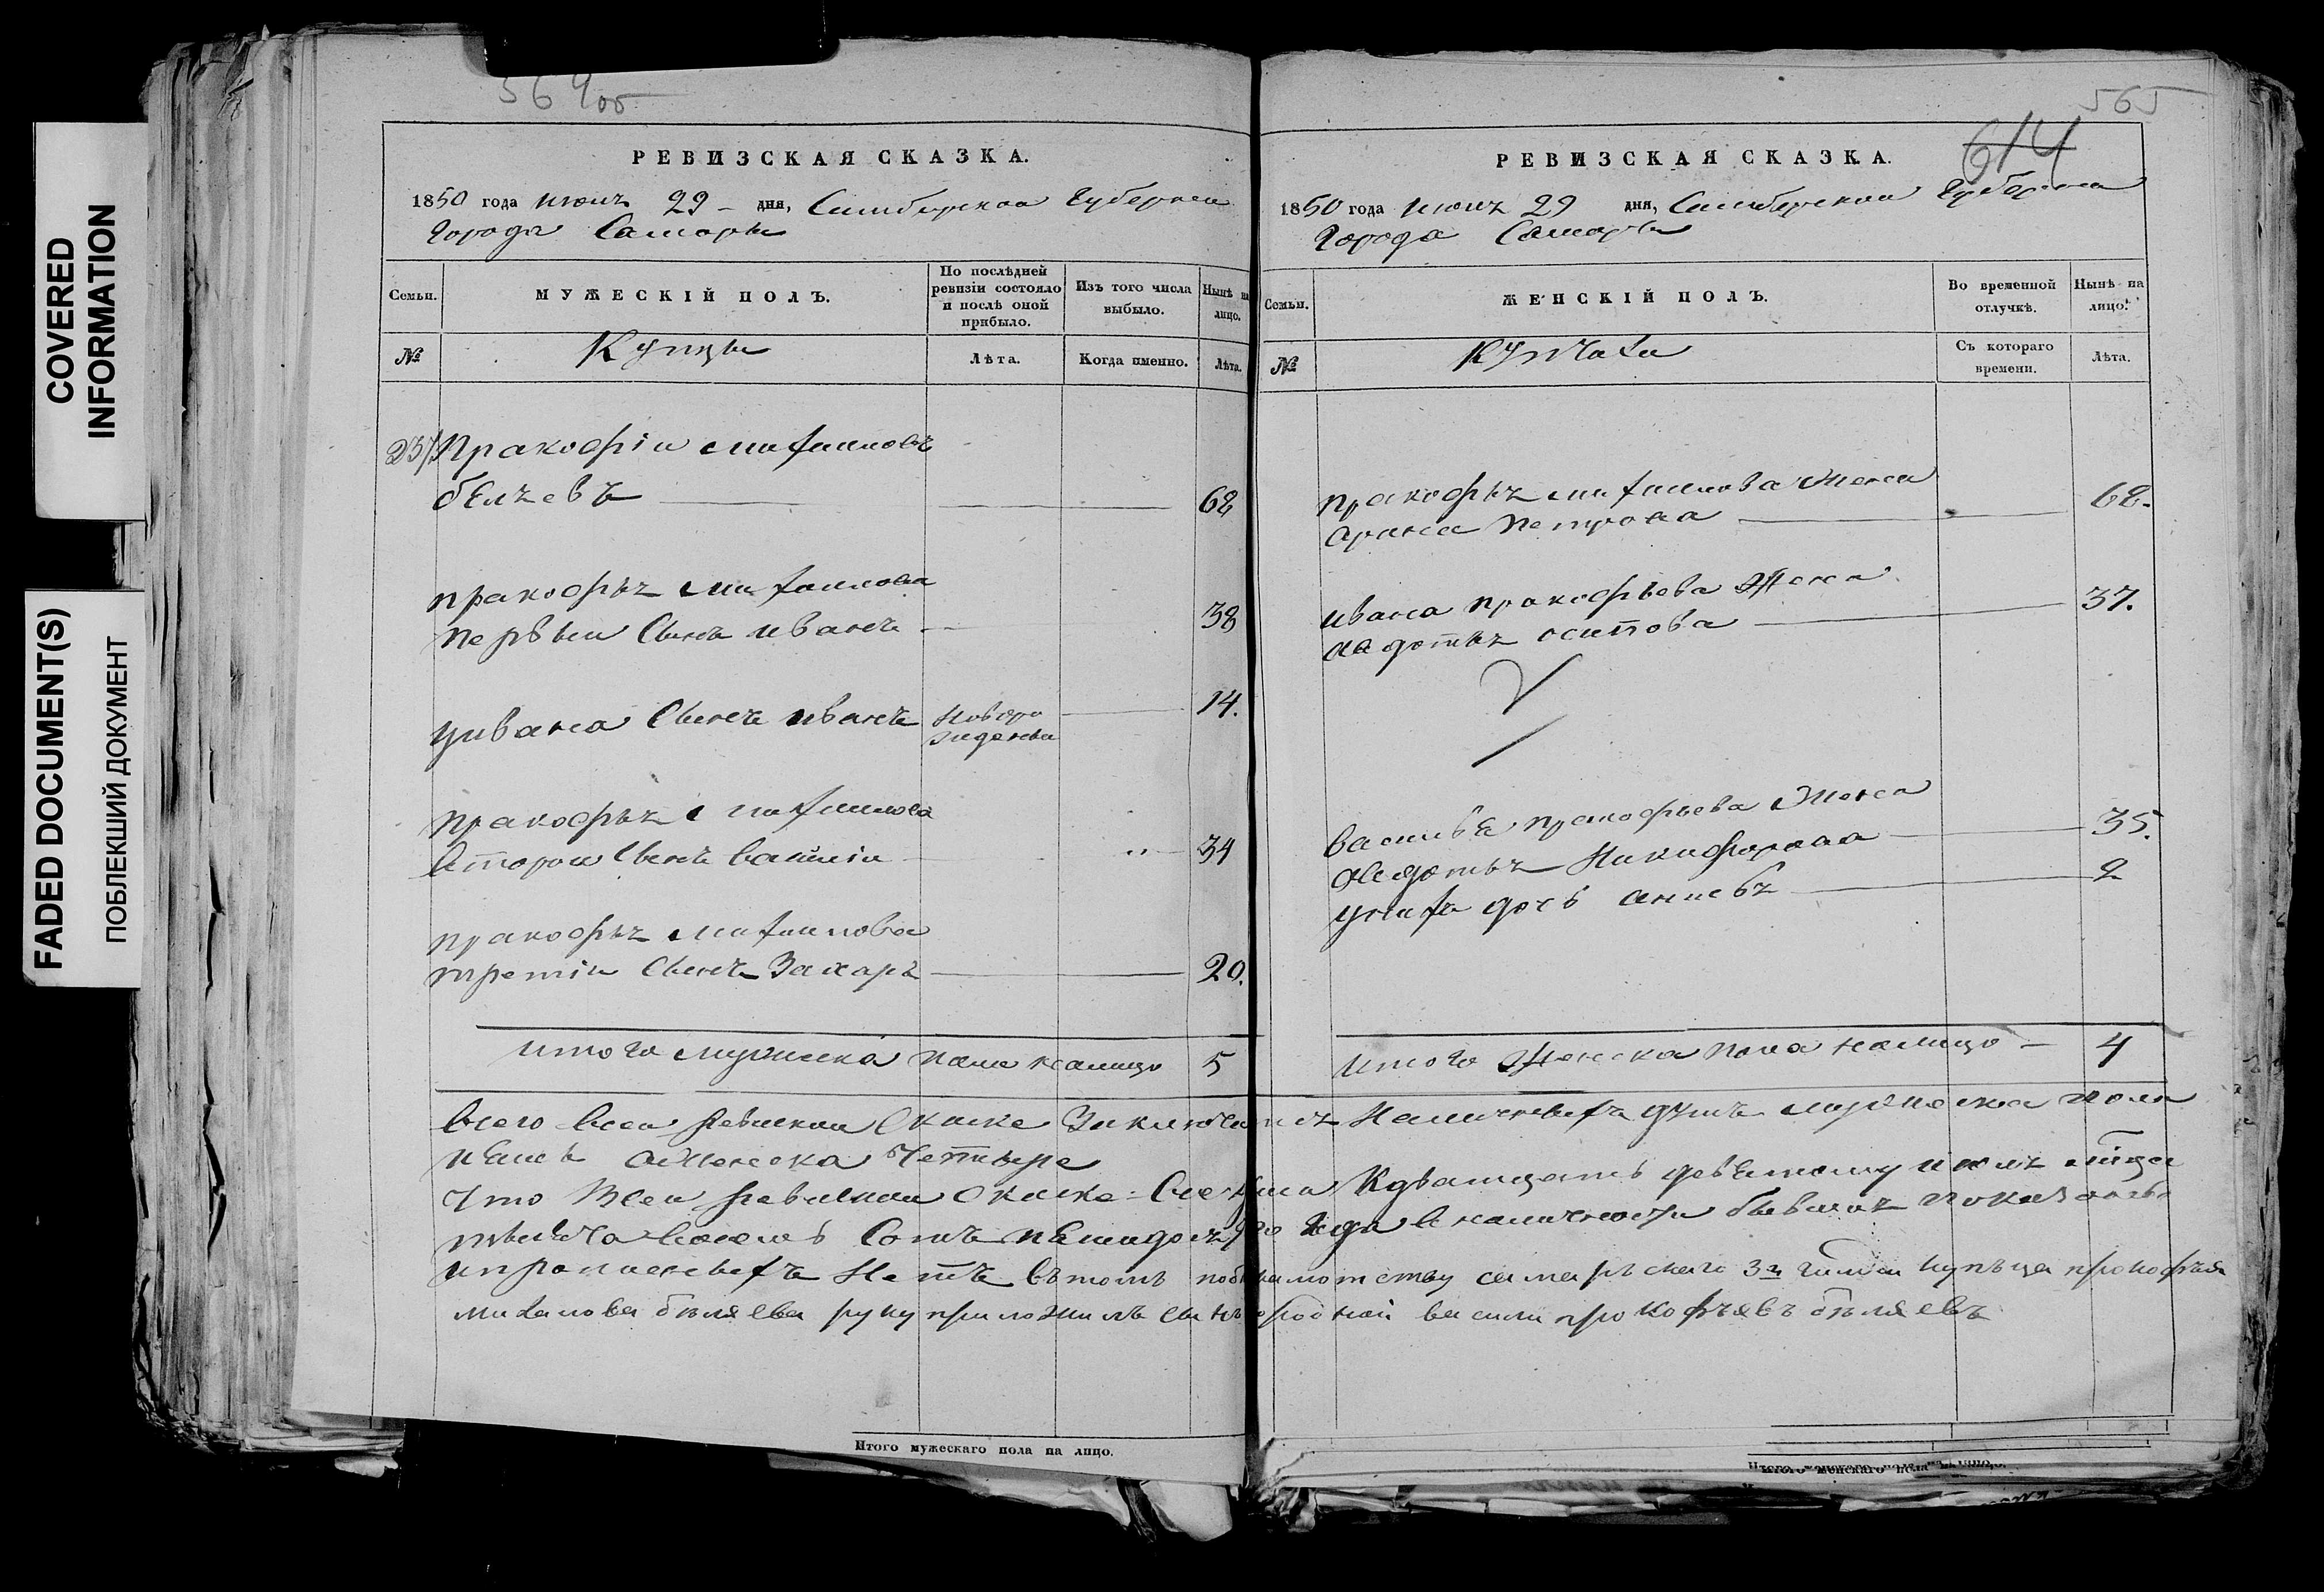 COVERED
INFORMATION
FADED DOCUMENT(S)
ПОБЛЕКШИЙ ДОКУМЕНТ
564 об
РЕВИЗСКАЯ СКАЗКА.
1850 года июнь 29 дня, Симбирскои Губернии
Города Самары
Семьи.
МУЖЕСКІЙ ПОЛЪ.
По послѣдней ревизіи состояло и послѣ оной прибыло.
Изъ того числа выбыло.
Нынѣ на лицо.
№
Купцы
Лѣта.
Когда именно.
Лѣта.
237 Пракофіи михаиловъ
белѣевъ 62
пракофьѣ михаилова
первыи сынъ иванъ 38
уивана сынъ иванъ новоро
жденны 14.
пракофьѣ михаилова
второи сынъ василіи 34
пракофьѣ михаилова
третіи сынъ Захаръ 20.
итого мужеска пола налицо 5
565
614
РЕВИЗСКАЯ СКАЗКА.
1850 года июнь 29 дня, Симбирскои Губерніи
Города Самары
Семьи.
ЖЕНСКІЙ ПОЛЪ.
Во временной отлучкѣ.
Нынѣ на лицо.
№
Купчихи
Съ котораго времени.
Лѣта.
пракофьѣ михаилова жена
арина петрова 62.
ивана пракофьева жена
осипова 37.
васильѣ пракофьева жена
Никифорова 35.
унихъ дочь 2
итого женска пола налицо 4
всего всеи ревискои скаске Заключаитсѣ Наличныхъ душъ мужеска пола
пѣть аженска Четыре
Что всеи ревискои скаске Кдватцать девѣтому
тысѣча восемь сотъ пѣтидесѣтого года в наличности бывшиѣ показаны
ипрописныхъ Нетъ вътомъ самарьскаго 3й гилди купьца прокофья
михалова бѣляева руку приложилъ сынъ родной васили прокофьявъ бѣляевъ
Итого мужескаго пола на лицо.
Итого женскаго пола на лицо.